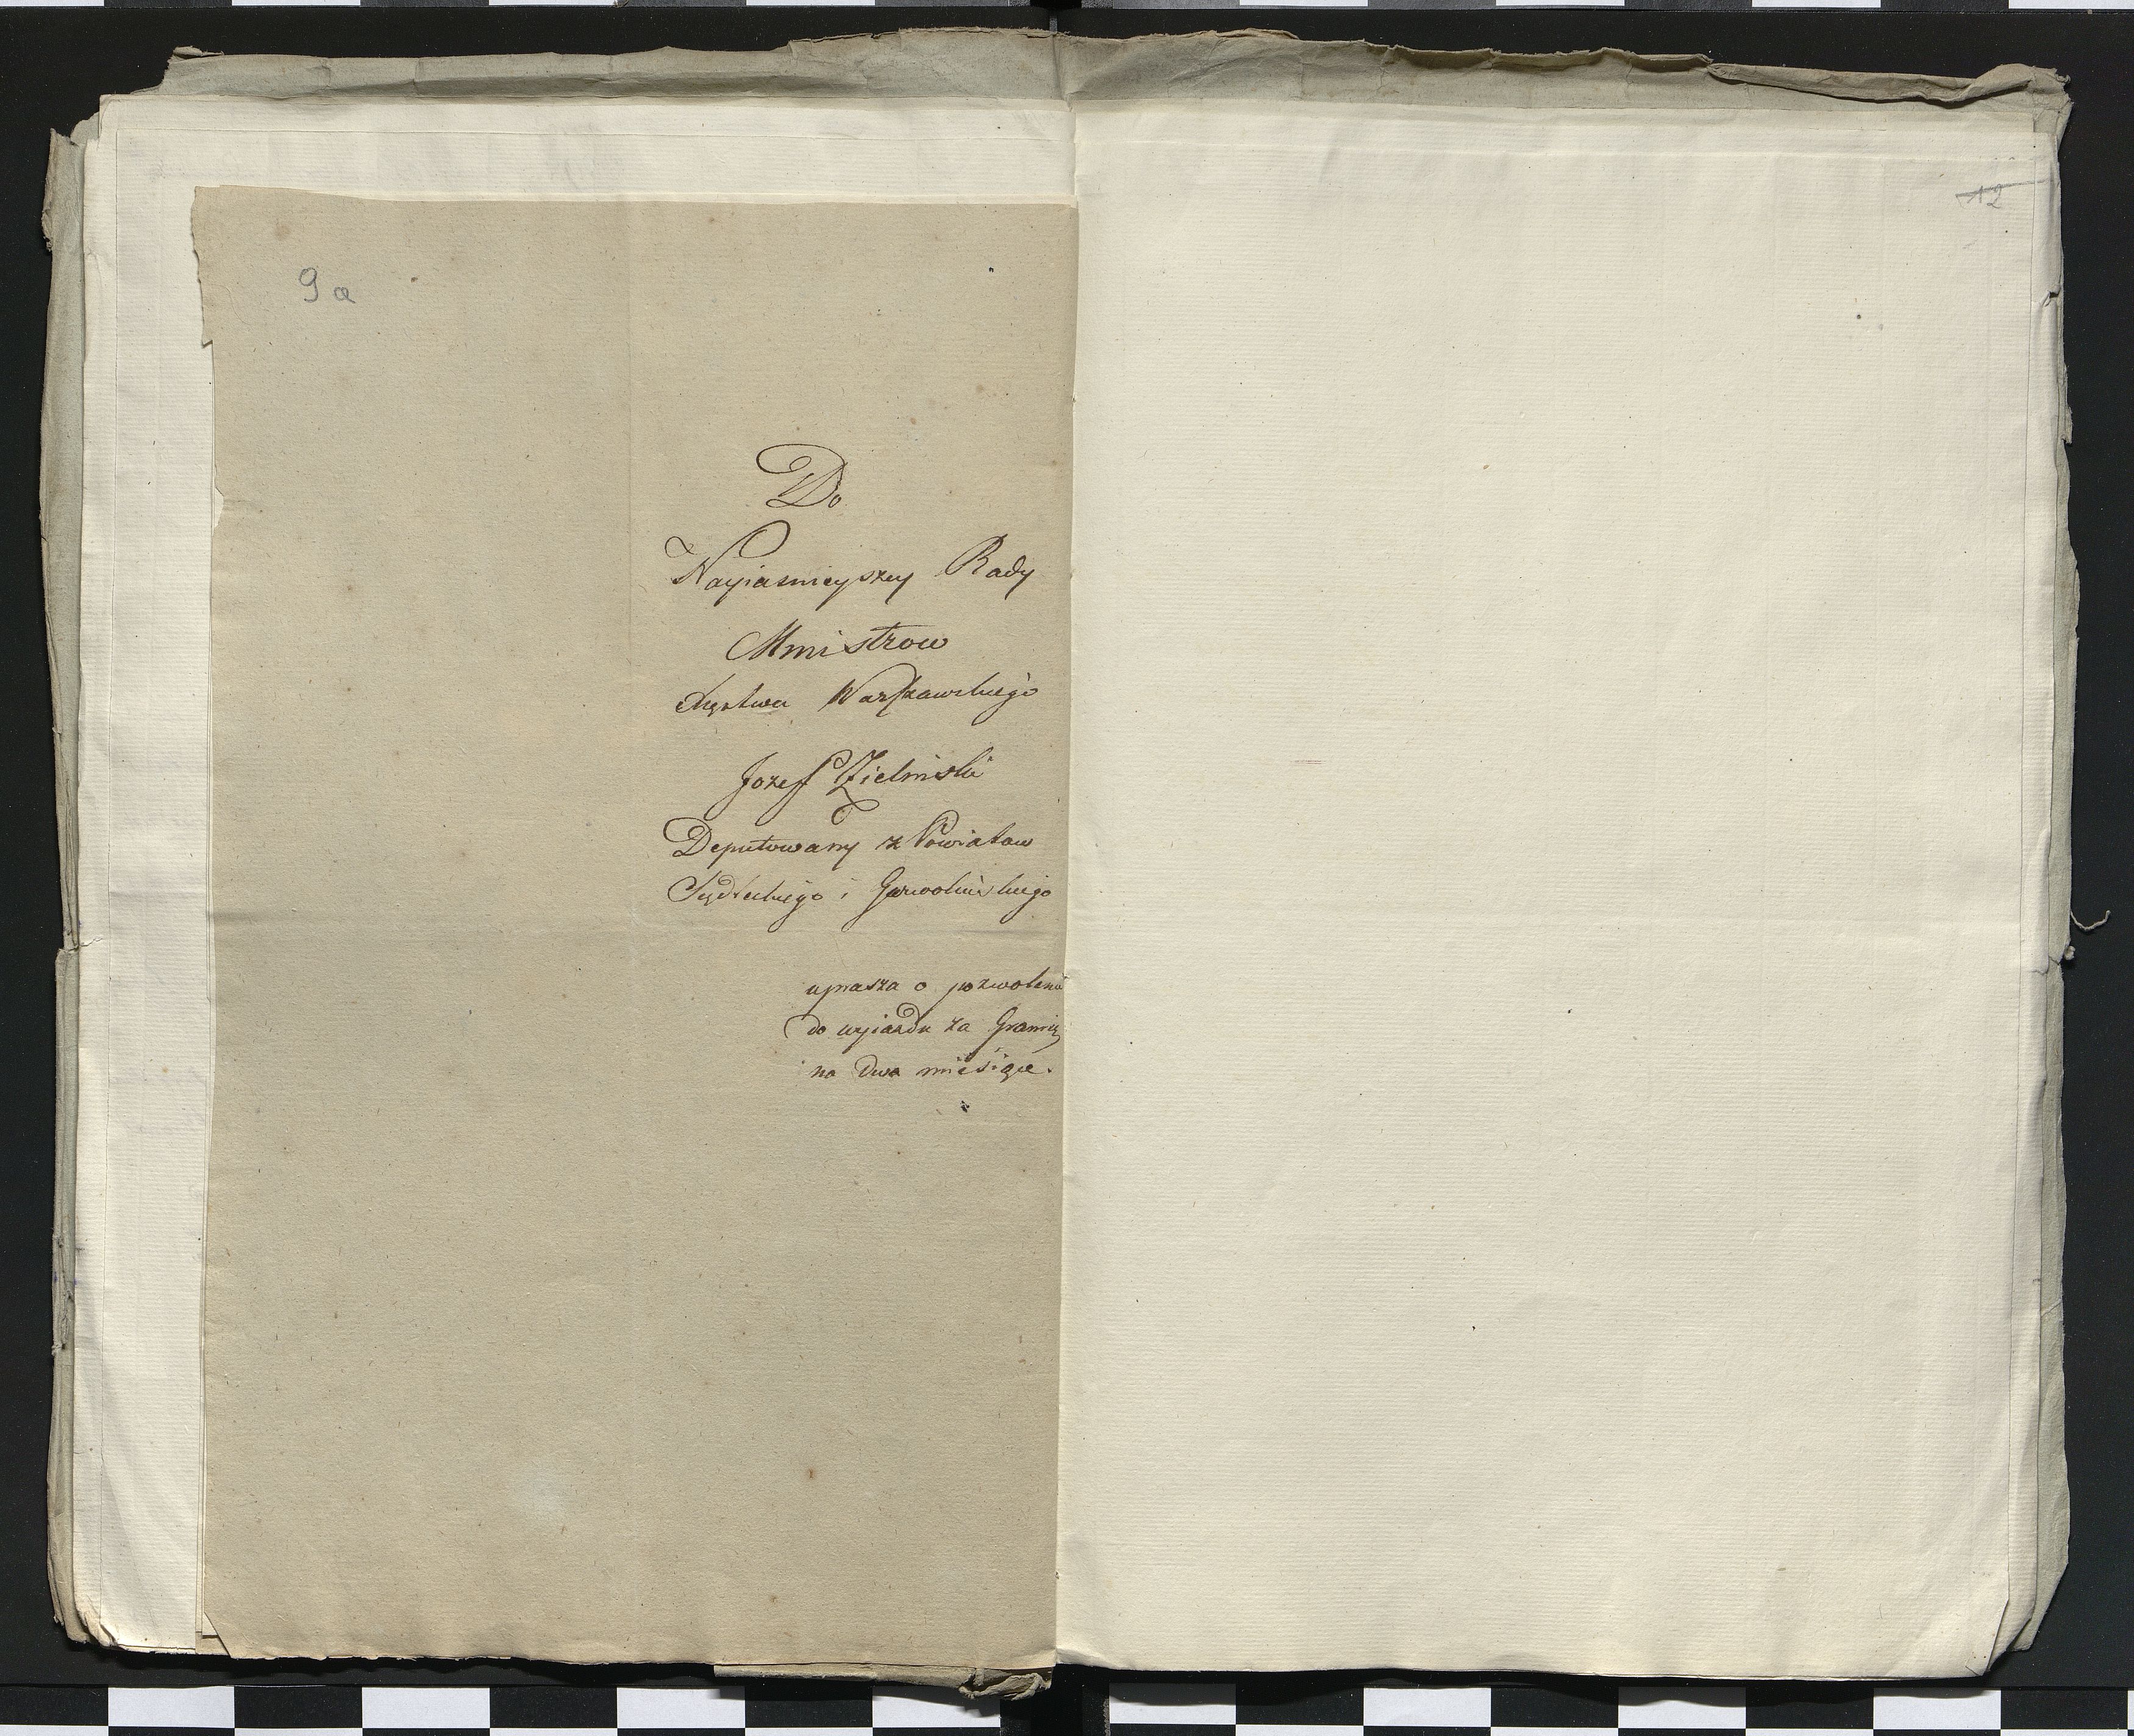 9a
Do
Nayiasnieyszey Rady
Ministrow
Xięstwa Warszawskiego
Jozef Zielinski
Deputowany z Powiatow
Siedleckiego i Garwolinskiego
uprasza o pozwolenie
do wyiazdu za Granicę
na dwa miesiące.
12